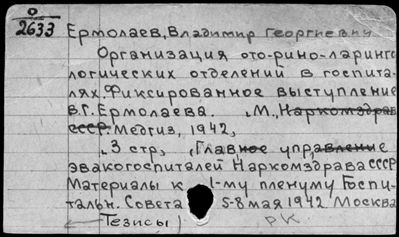 О
2633 Ермолаев, Владимир Георгиевич
Организация ото-рино-ларинго
логических отделений в госпита-
лях. Фиксированное выступление
В.Г. Ермолаева. М., Наркомздрав
СССР. Медгиз, 1942,
3 стр., (Главное управление
эвакогоспиталей Наркомздрава СССР
Материалы к 1-му пленуму Госпи-
тальн. Совета 5-8 мая 1942 Москва
Тезисы) РК.